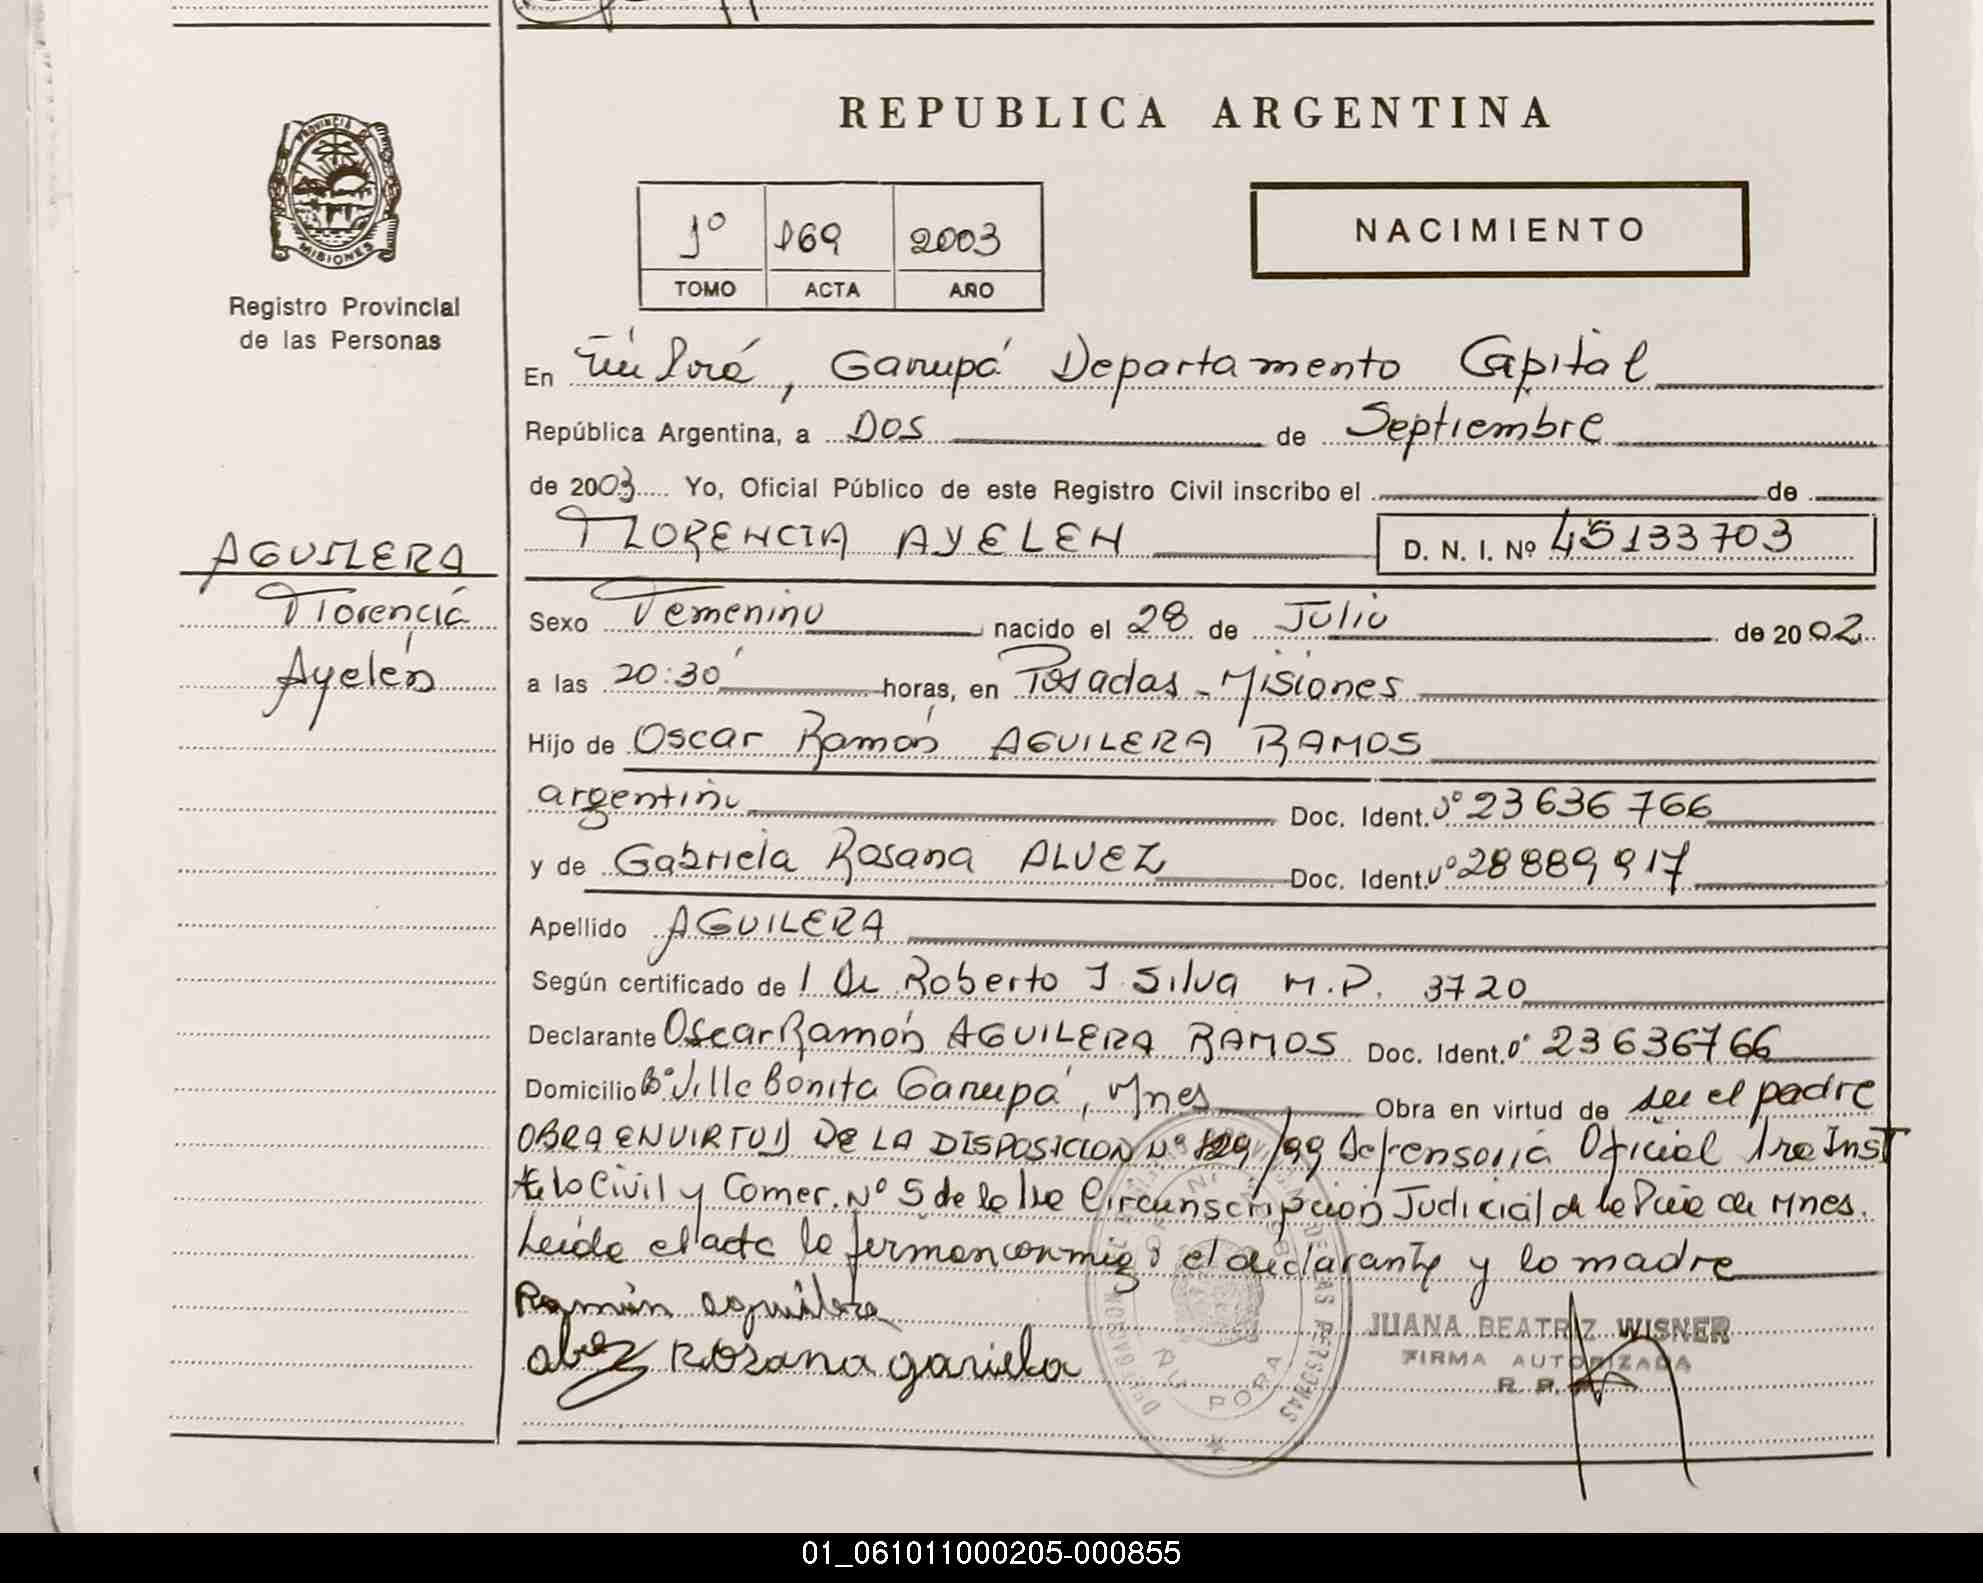 REPUBLICA ARGENTINA
PROVINCIA DE MISIONES
Registro Provincial
de las Personas
1º 169 2003
TOMO ACTA AÑO
NACIMIENTO
En Ñu Porá, Garupá Departamento Capital
República Argentina, a Dos de Septiembre
de 2003 Yo, Oficial Público de este Registro Civil inscribo el de
FLORENCIA AYELEN D. N. I. Nº 45133703
AGUILERA
Florencia
Ayelén
Sexo Femenino nacido el 28 de Julio de 2002
a las 20:30 horas, en Posadas - Misiones
Hijo de Oscar Ramón AGUILERA RAMOS
argentino Doc. Ident. Nº 23636766
y de Gabriela Rosana ALVEZ Doc. Ident. Nº 28889917
Apellido AGUILERA
Según certificado de / Dr. Roberto J. Silva M.P. 3720
Declarante Oscar Ramón AGUILERA RAMOS Doc. Ident. Nº 23636766
Domicilio Bº Villa Bonita Garupá, Mnes Obra en virtud de ser el padre
OBRA EN VIRTUD DE LA DISPOSICION Nº 129/99 Defensoría Oficial 1ra Inst
en lo Civil y Comer. Nº 5 de la 1ra Circunscripción Judicial de la Pcia de Mnes.
Leída el acta la firman conmigo el declarante y la madre
Ramón aguilera
alvez Rozana gariela
JUANA BEATRIZ WISNER
FIRMA AUTORIZADA
R. P.
DELEGACION
ÑU PORA
DE LAS PERSONAS
01_061011000205-000855